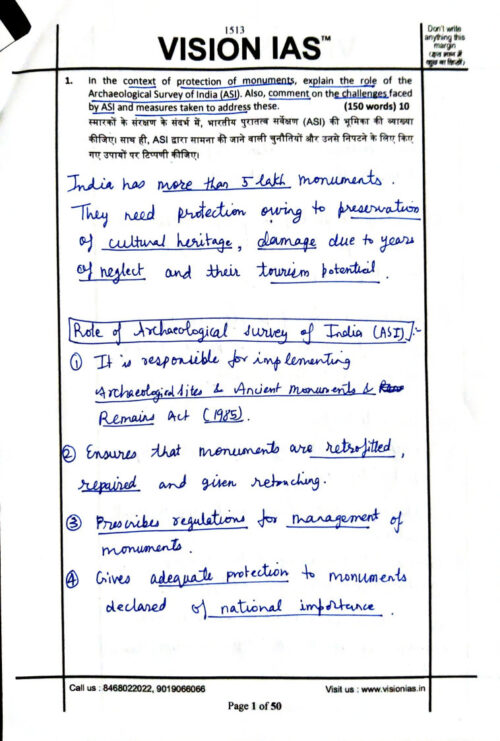 1513
VISION IAS™
Don't write
anything this
margin
(इस भाग में
कुछ ना लिखें)
1. In the context of protection of monuments, explain the role of the
Archaeological Survey of India (ASI). Also, comment on the challenges faced
by ASI and measures taken to address these. (150 words) 10
स्मारकों के संरक्षण के संदर्भ में, भारतीय पुरातत्व सर्वेक्षण (ASI) की भूमिका की व्याख्या
कीजिए। साथ ही, ASI द्वारा सामना की जाने वाली चुनौतियों और उनसे निपटने के लिए किए
गए उपायों पर टिप्पणी कीजिए।
India has more than 5 lakh monuments.
They need protection owing to preservation
of cultural heritage, damage due to years
of neglect and their tourism potential.
Role of Archaeological Survey of India (ASI):-
① It is responsible for implementing
Archaeological sites & Ancient Monuments &
Remains Act (1985).
② Ensures that monuments are retrofitted,
repaired and given retouching.
③ Prescribes regulations for management of
monuments.
④ Gives adequate protection to monuments
declared of national importance.
Call us : 8468022022, 9019066066
Visit us : www.visionias.in
Page 1 of 50